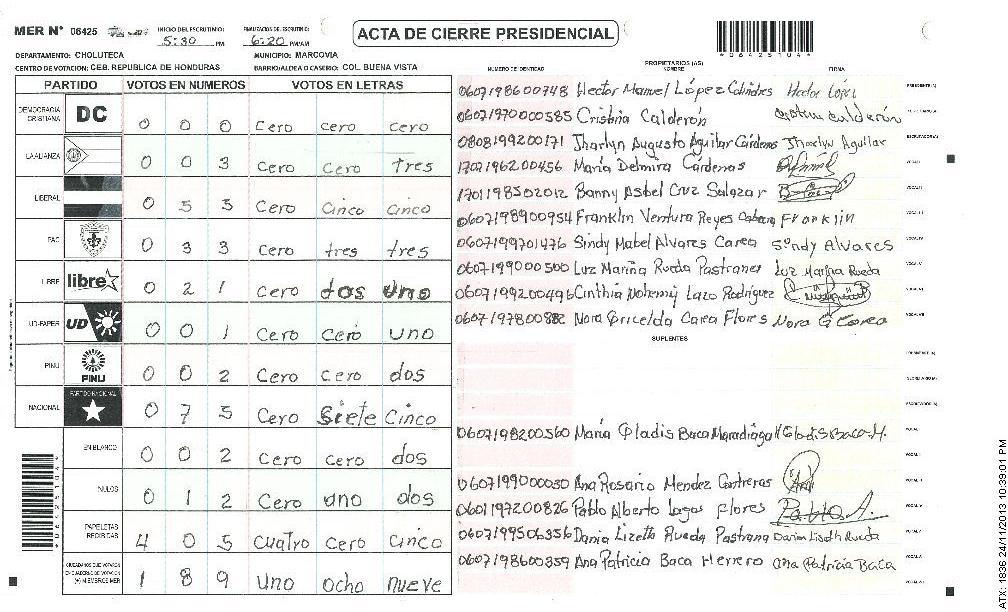 MER Nº 06425 INICIO DEL ESCRUTINIO: 5:30 PM FINALIZACION DE ESCRUTINIO: 6:20 PM/AM
ACTA DE CIERRE PRESIDENCIAL
*06425104*
DEPARTAMENTO: CHOLUTECA MUNICIPIO: MARCOVIA
CENTRO DE VOTACION: CEB. REPUBLICA DE HONDURAS BARRIO/ALDEA O CASERIO: COL. BUENA VISTA
PARTIDO VOTOS EN NUMEROS VOTOS EN LETRAS
DEMOCRACIA CRISTIANA DC 0 0 0 Cero cero cero
LA ALIANZA 0 0 3 Cero Cero tres
LIBERAL 0 5 5 Cero Cinco Cinco
PAC 0 3 3 Cero tres tres
LIBRE libre 0 2 1 Cero dos uno
UD-FAPER UD 0 0 1 Cero Cero uno
PINU PINU 0 0 2 Cero Cero dos
NACIONAL PARTIDO NACIONAL 0 7 5 Cero Siete Cinco
EN BLANCO 0 0 2 Cero Cero dos
NULOS 0 1 2 Cero uno dos
PAPELETAS RECIBIDAS 4 0 5 Cuatro Cero Cinco
CIUDADANOS QUE VOTARON EN CUADERNO DE VOTACION (+) MIEMBROS MER 1 8 9 Uno ocho nueve
PROPIETARIOS (AS)
NUMERO DE IDENTIDAD NOMBRE FIRMA
0607198600748 Hector Manuel López Hector López PRESIDENTE(A)
0607197000585 Cristina Calderón
0808199200171 Jharlyn Augusto Aguilar Cárdenas Jharlyn Aguilar
1702196200456 María Delmira Cárdenas
1701198502012 Banny Asbel Cruz Salazar
0607198900954 Franklin Ventura Reyes Franklin
0607199701476 Sindy Mabel Alvares Carea Sindy Alvares
0607199000500 Luz Marina Rueda Pastrana Luz Marina Rueda
0607199200496 Cinthia Nohemy Lazo Rodríguez
0607197800882 Nora Gricelda Carea Flores Nora G Carea
SUPLENTES
0607198200560 María Gladis Baca Maradiaga Gladis Baca M.
0607199000050 Ana Rosario Mendez Contreras
0601197200826 Pablo Alberto Lagos Flores Pablo A.
0607199506356 Dania Lizeth Rueda Pastrana Dania Liseth Rueda
0607198600859 Ana Patricia Baca Herrero Ana Patricia Baca
ATX: 1836 24/11/2013 10:39:01 PM